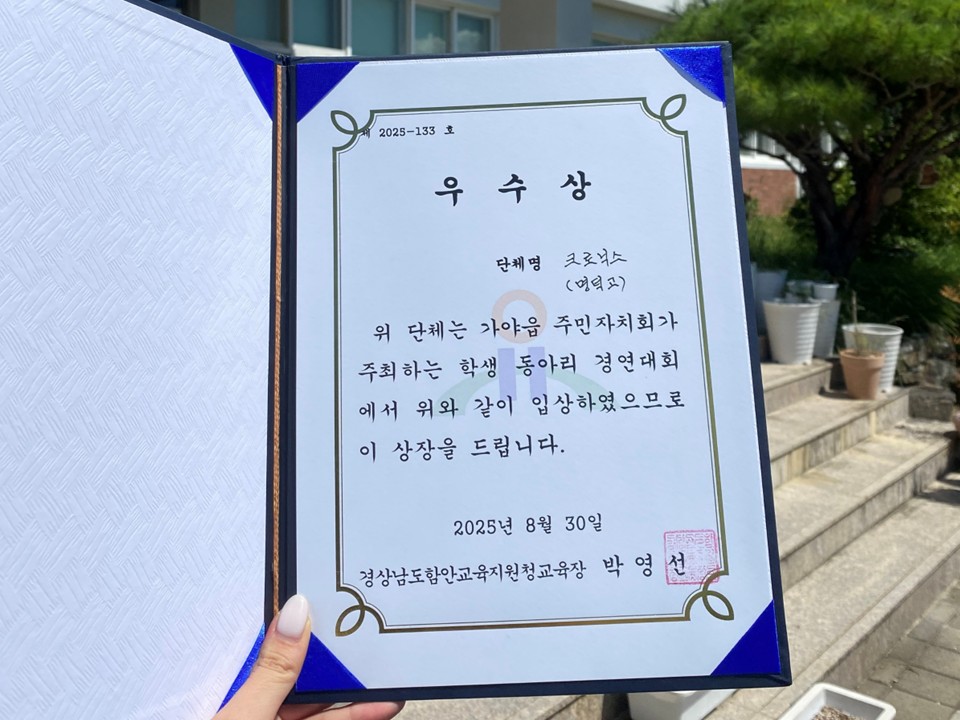 제 2025-133 호
우 수 상
단체명 크로닉스
(명덕고)
위 단체는 가야읍 주민자치회가
주최하는 학생 동아리 경연대회
에서 위와 같이 입상하였으므로
이 상장을 드립니다.
2025년 8월 30일
경상남도함안교육지원청교육장 박 영 선